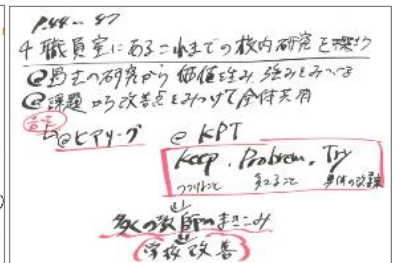 P.44～47
4 職員室にあるこれまでの校内研究を探る
@過去の研究から 価値を生み、強みをみつける
@課題から改善点をみつけて全体共有
@ヒアリング @ KPT
Keep. Problem. Try
つづけること
多くの教師のまきこみ
学校改善